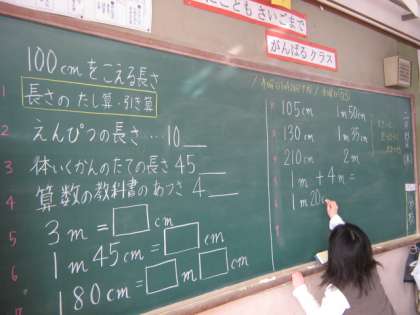 にこども さいごまで
がんばる クラス
100cmをこえる長さ
長さの たし算・引き算
1
2 えんぴつの長さ…10__
3 体いくかんのたての長さ45__
4 算数の教科書のあつさ 4__
5 3m=□cm
6 1m45cm=□cm
7 180cm=□m□cm
105cm 1m50cm
130cm 1m35cm
210cm 2m
1m+4m=
1m20c